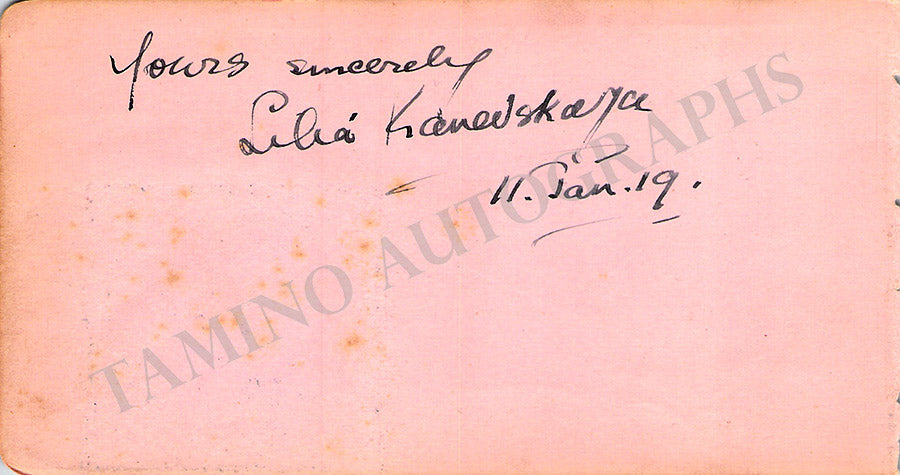 Yours sincerely
Lilia Kanevskaya
11. Jan. 19.
TAMINO AUTOGRAPHS